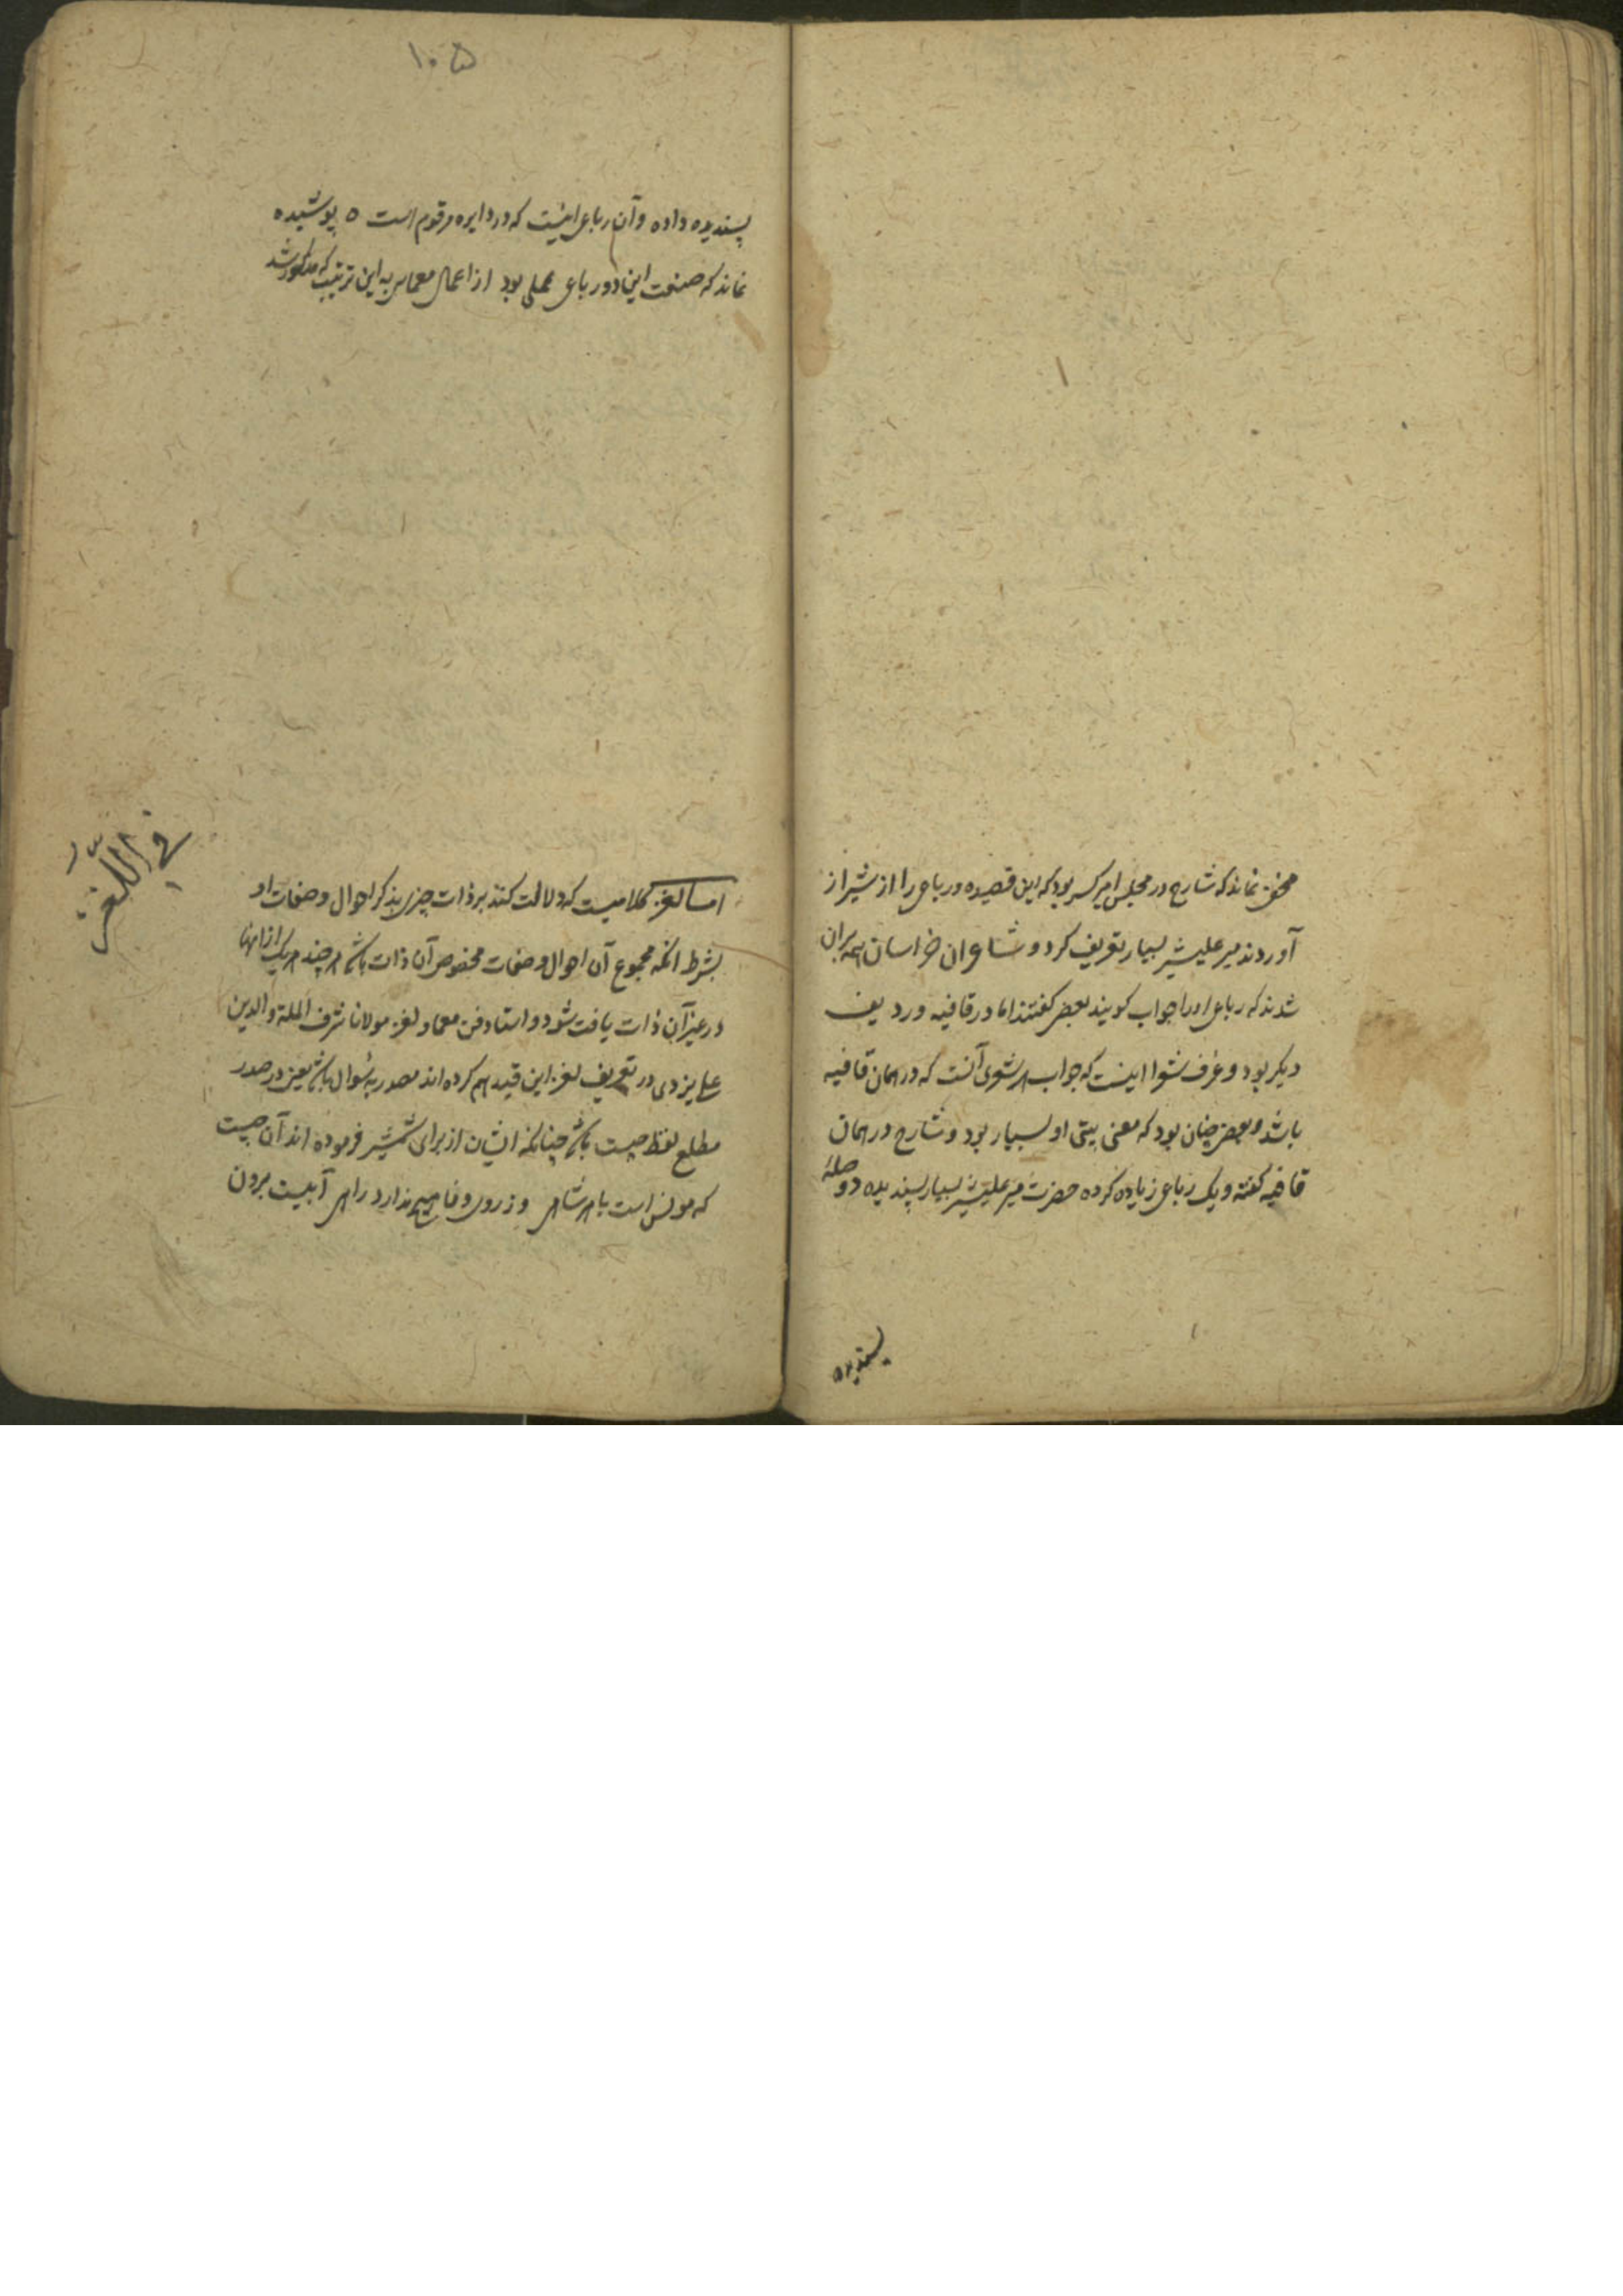 مخفی نماند که شارح در مجلس امیر کبیر بود که این قصیده و رباعی را از شیراز
آوردند میر علیشیر بسیار تعریف کرد و شاعران خراسان همه بران
شدند که رباعی او را جواب کویند بعضی کفتند اما در قافیه و ردیف
دیکر بود و عرف شعرا اینست که جواب هر شعری آنست که در همان قافیه
باشد و بعضی چنان بود که معنی بیتی او بسیار بود و شارح در همان
قافیه کفته و یک رباعی زیاده کرده حضرت میر علیشیر بسیار پسندیده و صلهٔ
پسندیده
۱۰۵
پسندیده داده و آن رباعی اینست که در دایره مرقوم است ٥ پوشیده
نماند که صنعت این دو رباعی عملی بود از اعمال معمایی به این ترتیب که مذکور شد
فی اللغز
اما لغز کلامیست که دلالت کند بر ذات چیزی بذکر احوال و صفات او
بشرط انکه مجموع آن احوال و صفات مخصوص آن ذات باشد هر چند هر یک از اینها
در غیر آن ذات یافت شود و استاد فن معما و لغز مولانا شرف الملة والدین
علی یزدی در تعریف لغز این قید هم کرده اند مصدر به سوال باشد یعنی در صدر
مطلع لفظ چیست باشد چنانکه ایشان از برای شمشیر فرموده اند آن چیست
که مونس است با هر شاهی وز روی وفا هیچ ندارد راهی آبیست برون